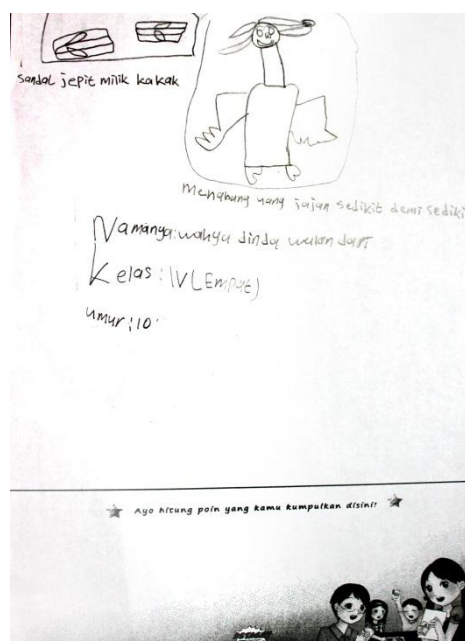 Sandal jepit milik kakak
Menabung uang jajan sedikit demi sediki
Namanya: wahyu dinda wulan dari
Kelas: IV (Empat)
umur: 10
Ayo hitung poin yang kamu kumpulkan disini!